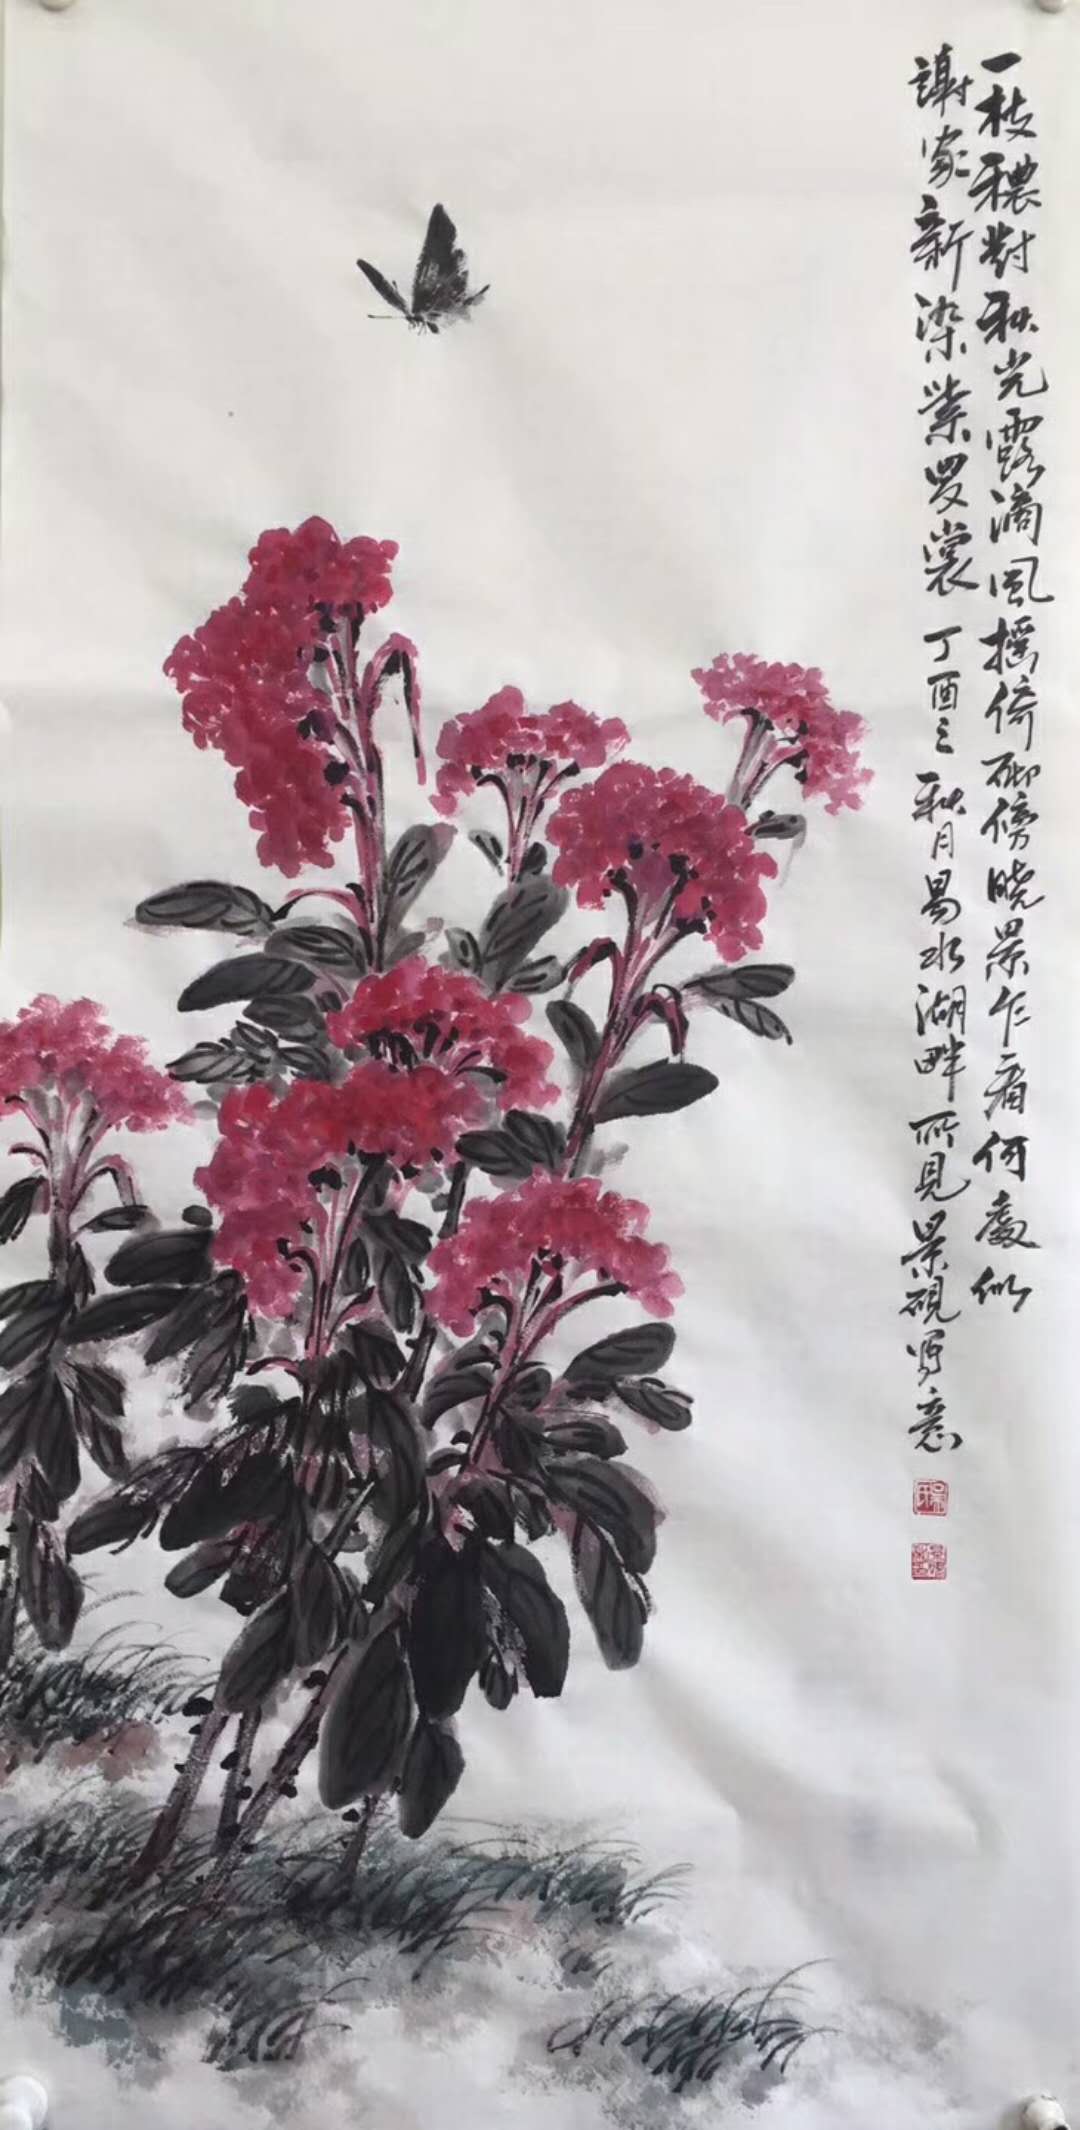 一枝穠對秋光露滴風摇倚砌傍曉景乍看何處似
謝家新染紫羅裳丁酉之秋月易水湖畔所見景硯寫意